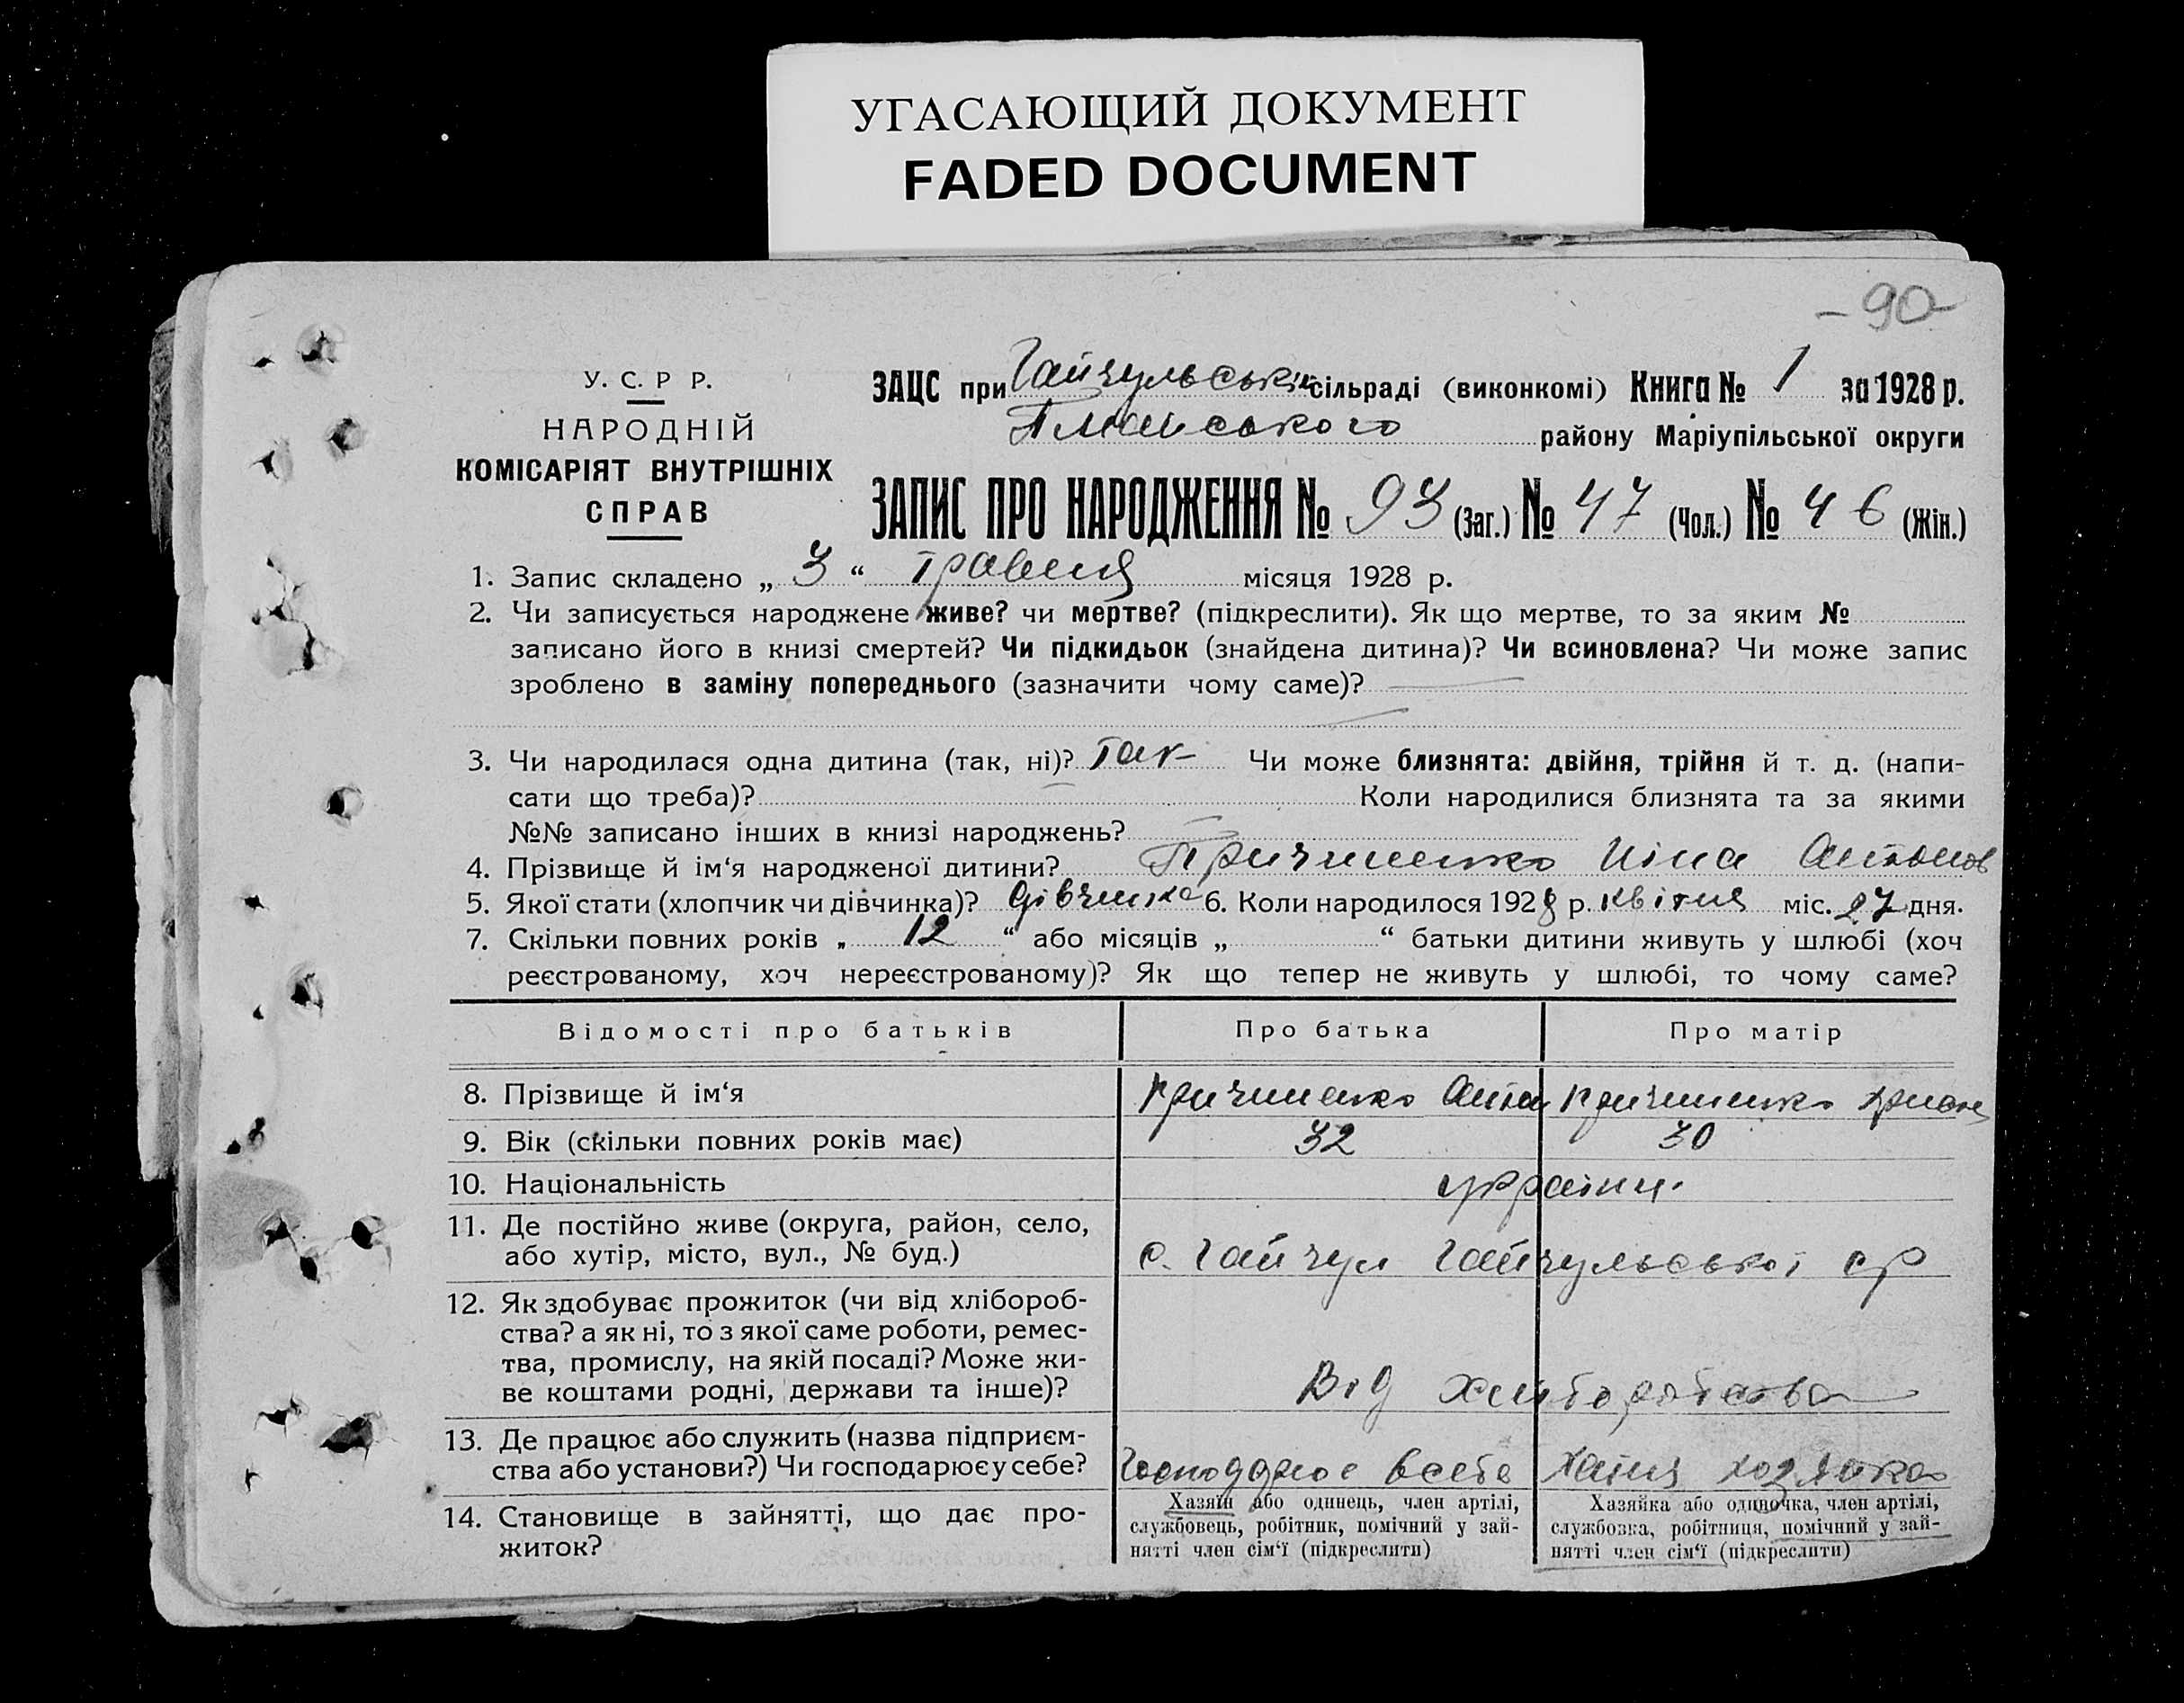 УГАСАЮЩИЙ ДОКУМЕНТ
FADED DOCUMENT
-90-
У. С. Р Р.
НАРОДНІЙ
КОМІСАРІЯТ ВНУТРІШНІХ
СПРАВ
ЗАЦС при Гайчульській сільраді (виконкомі) Книга № 1 за 1928 р.
району Маріупільської округи
ЗАПИС ПРО НАРОДЖЕННЯ № 93 (Заг.) № 47 (Чол.) № 46 (Жін.)
1. Запис складено „ 3 “ травня місяця 1928 р.
2. Чи записується народжене живе? чи мертве? (підкреслити). Як що мертве, то за яким №
записано його в книзі смертей? Чи підкидьок (знайдена дитина)? Чи всиновлена? Чи може запис
зроблено в заміну попереднього (зазначити чому саме)?
3. Чи народилася одна дитина (так, ні)? Так Чи може близнята: двійня, трійня й т. д. (напи-
сати що треба)? Коли народилися близнята та за якими
№№ записано інших в книзі народжень?
4. Прізвище й ім‘я народженої дитини? Ніна Антонов
5. Якої стати (хлопчик чи дівчинка)? дівчинка 6. Коли народилось 1928 р. квітня міс. 27 дня.
7. Скільки повних років „ 12 “ або місяців „ “ батьки дитини живуть у шлюбі (хоч
реєстрованому, хоч нереєстрованому)? Як що тепер не живуть у шлюбі, то чому саме?
Відомості про батьків Про батька Про матір
8. Прізвище й ім‘я
9. Вік (скільки повних років має) 32 30
10. Національність україн.
11. Де постійно живе (округа, район, село,
або хутір, місто, вул., № буд.) с. Гайчул Гайчульської с/р
12. Як здобуває прожиток (чи від хлібороб-
ства? а як ні, то з якої саме роботи, ремес-
тва, промислу, на якій посаді? Може жи-
ве коштами родні, держави та інше)? Від хліборобства
13. Де працює або служить (назва підприєм-
ства або установи?) Чи господарює у себе? Господарює в себе
14. Становище в зайнятті, що дає про-
житок?
Хазяїн або одинець, член артілі,
службовець, робітник, помічний у зай-
нятті член сім‘ї (підкреслити)
Хазяйка або одиночка, член артілі,
службовка, робітниця, помічний у зай-
нятті член сім‘ї (підкреслити)